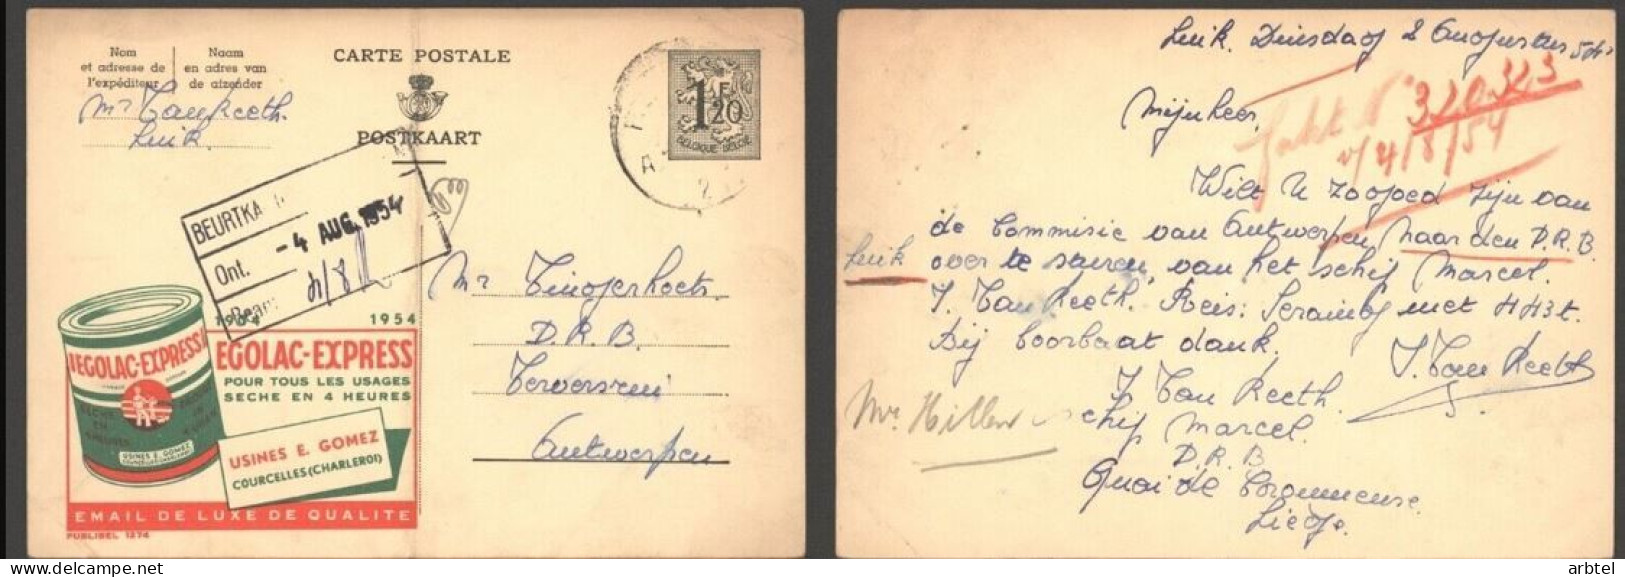 Nom
et adresse de
l'expéditeur
Naam
en adres van
de afzender
CARTE POSTALE
POSTKAART
1F20
BELGIQUE-BELGIË
Mr Van Reeth.
Luik.
BEURTKA
Ont. - 4 AUG. 1954
Beant.
4/8
Mr
D.R.B.
Antwerpen
1904 1954
EGOLAC-EXPRESS
POUR TOUS LES USAGES
SECHE EN 4 HEURES
USINES E. GOMEZ
COURCELLES (CHARLEROI)
EMAIL DE LUXE DE QUALITE
PUBLIBEL 1274
VEGOLAC-EXPRESS
SECHE
EN
4 HEURES
USINES E. GOMEZ
Luik. Dinsdag 2 Augustus 54.
Mijnheer,
320.323
4/8/54
Wilt U zoogoed zijn van
de Commisie van Antwerpen naar den D.R.B.
Luik over te sturen, van het schip Marcel.
J. Van Reeth. Reis: Seraing met HH3t.
Bij voorbaat dank,
J. Van Reeth
J. Van Reeth.
schip Marcel.
D.R.B
Quai de Coronmeuse.
Liège.
arbtel